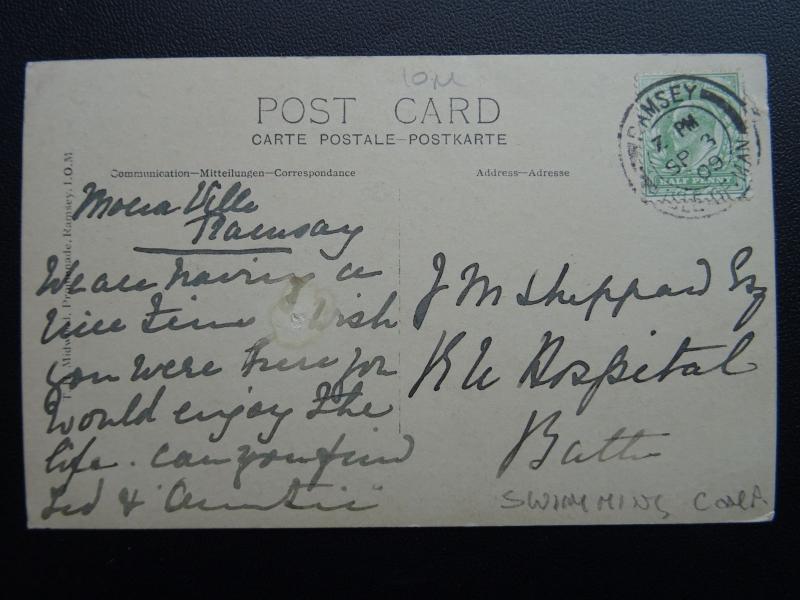 IOM
POST CARD
CARTE POSTALE–POSTKARTE
Communication—Mitteilungen—Correspondence
Address—Adresse
RAMSEY
7 PM
SP 3
09
ISLE OF MAN
HALF PENNY
Midwood, Promenade, Ramsey, I.O.M
Mona Villa
Ramsay
We are having a
nice time Wish
you were here you
would enjoy the
life. can you find
Ted & "Auntie"
J M Sheppard Esq
R U Hospital
Bath
SWIMMING